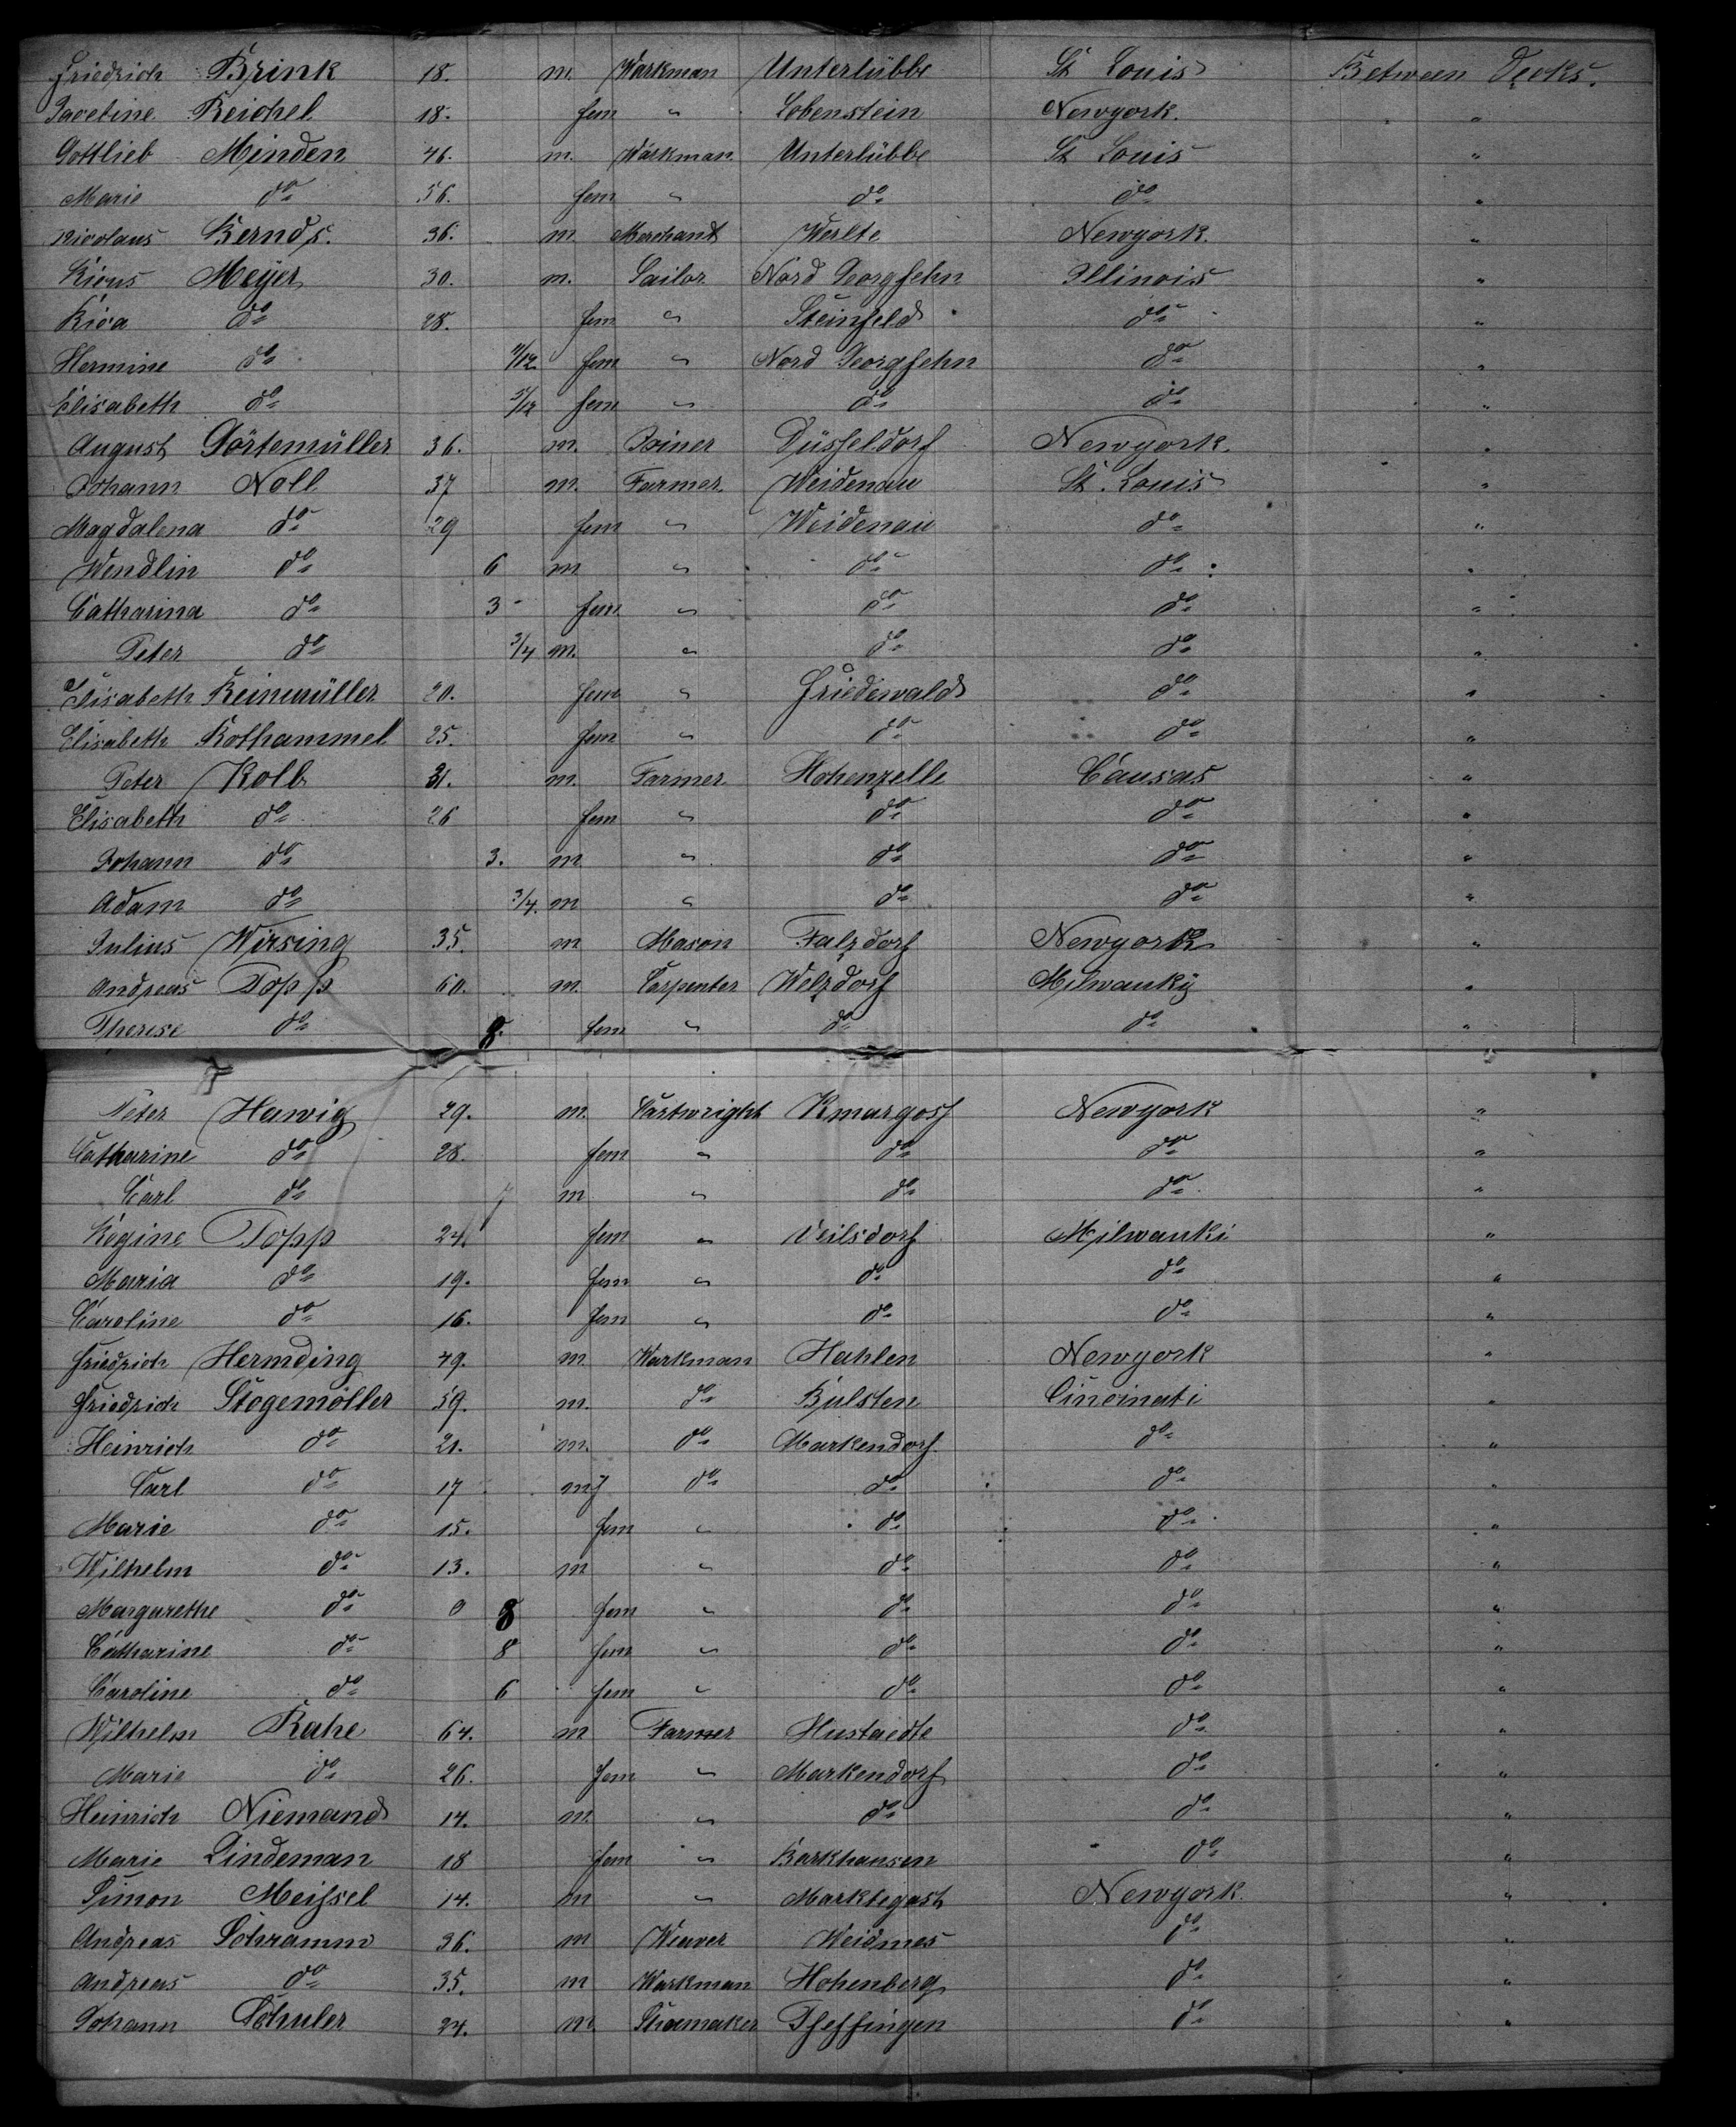 Friedrich Brink 18. m. Warkman Unterlübbe St Louis Between Decks.
Reichel 18. fem " Lobenstein Newyork. "
Gottlieb Minden 46. m. Warkman Unterlübbe St Louis "
Marie do 56. fem " do do "
Nicolaus Bernds. 36. m Merchant Werlte Newyork. "
Meyer 30. m. Sailor Nord Georgfehn Illinois "
Rica do 28. fem " Steinfeld do "
Hermine do 11/12 fem " Nord Georgfehn do "
Elisabeth do 5/12 fem " do do "
August Görtemüller 36. m. Joiner Düsseldorf Newyork. "
Johann Noll 37 m. Farmer Weidenau St. Louis "
Magdalena do 29 fem " Weidenau do "
Wendlin do 6 m " do do "
Catharina do 3 fem " do do "
Peter do 3/4 m. " do do "
Elisabeth Reinmüller 20. fem " Friedewald do "
Elisabeth Rothammel 25. fem " do do "
Peter Kolb 31. m. Farmer Hohenzelle Causas "
Elisabeth do 26 fem " do do "
Johann do 3. m " do do "
Adam do 3/4. m " do do "
Julius Wirsing 35. m Mason Falzdorf Newyork "
Andreas Topp 60. m. Carpenter Welzdorf Milwauky "
Therese do 8. fem " do do "
Peter Hawig 29. m. Cartwright Newyork "
Catharine do 28. fem " do do "
Carl do m " do do "
Regine Topp 24. fem " Veilsdorf Milwauki "
Maria do 19. fem " do do "
Caroline do 16. fem " do do "
Friedrich Hermding 49. m Warkman Hahlen Newyork "
Friedrich Stogemöller 59. m. do Bülsten Cincinati "
Heinrich do 21. m. do Markendorf do "
Carl do 17 m do do do "
Marie do 15. fem " do do "
Wilhelm do 13. m " do do "
Margarethe do 0 8 fem " do do "
Catharine do 8 fem " do do "
Caroline do 6 fem " do do "
Wilhelm Rahe 64. m Farmer Hustaedte do "
Marie do 26. fem " Markendorf do "
Heinrich Niemand 14. m. " do do "
Marie Lindeman 18 fem " Barkhausen do "
Simon Meissel 14. m " Marktegast Newyork. "
Andreas Schramm 36. m Weaver Weidmes do "
Andreas do 35. m Warkman Hohenberg do "
Johann Schuler 24. m Shoemaker Pfeffingen do "